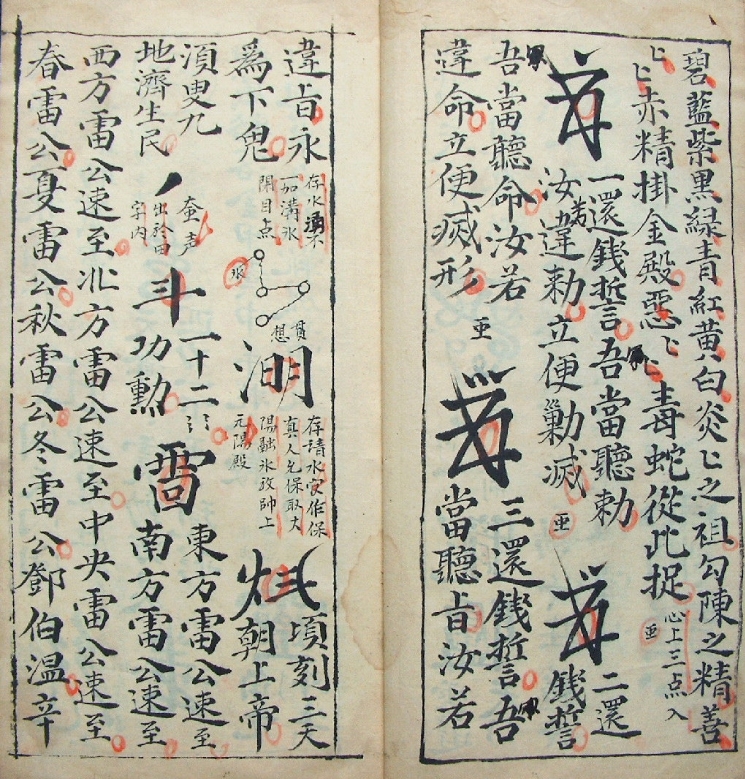 碧藍紫黑綠青紅黃白炎匕之祖勾陳之精善
匕匕赤精掛金殿惡匕毒蛇從此捉
心上三点入
一還銭誓吾當聽勅
汝若違勅立便勦滅
二還
銭誓
吾當聽命汝若
違命立便滅形
三還銭誓吾
當聽㫖汝若
違㫖永
為下鬼
一如溝水
水
想
存請水官作保
真人乞保取大
陽融水放師上
元陽殿
頃刻三天
朝上帝
須臾九
地濟生民
出於田
字内
斗
一十二
功勳
雷
東方雷公速至
南方雷公速至
西方雷公速至北方雷公速至中央雷公速至
春雷公夏雷公秋雷公冬雷公鄧伯温辛